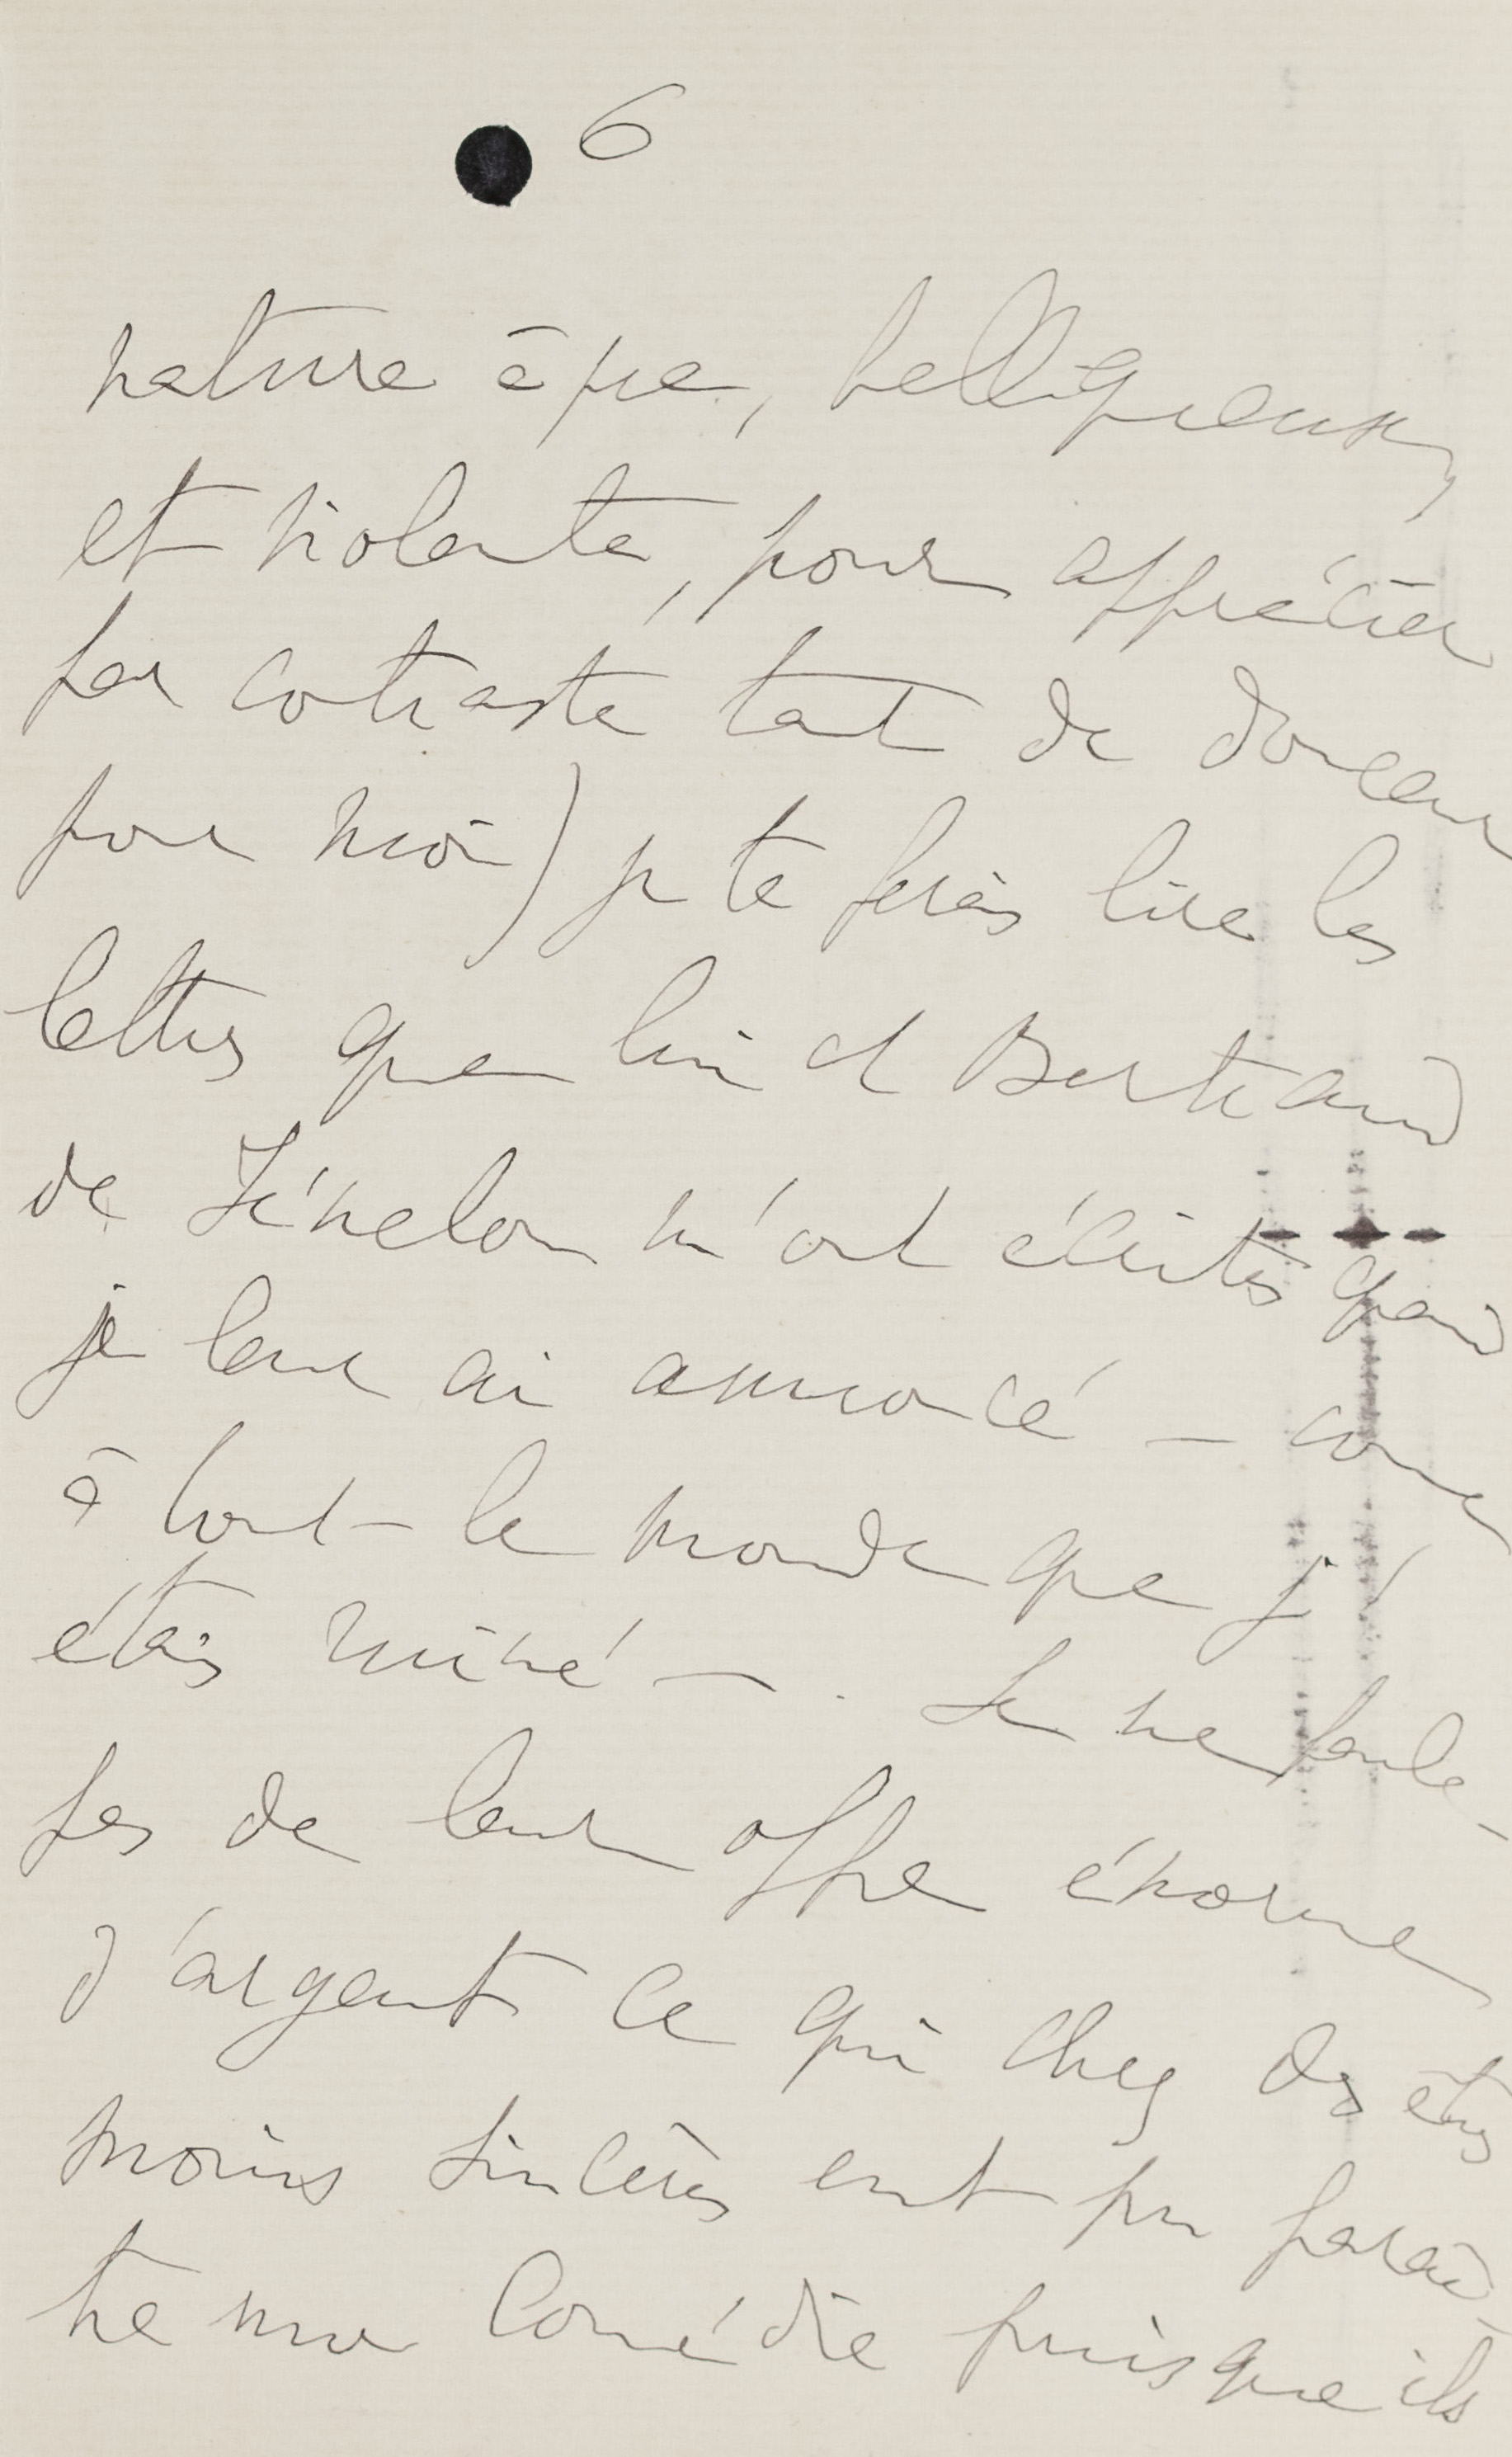 6
nature âpre, belliqueuse,
et violente, pour apprécier
par cotraste tant de douceur
pour moi) je te ferais lire les
lettres que lui et Bertrand
de Fénelon m'ont écrites quand
je leur ai annoncé — comme
à tout le monde que j'
étais ruiné —. Je ne parle
pas de leur offre énorme
d'argent ce qui chez des êtres
moins sincères eut pu paraî-
tre une comédie puisque ils